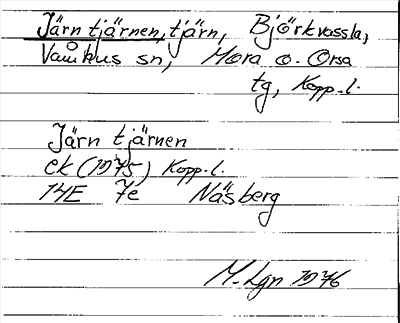 Järn tjärnen, tjärn, Björkvassla,
Våmhus sn, Mora o. Orsa
tg, Kopp. l.
Järn tjärnen
ek (1975) Kopp. l.
14E 7e Näsberg
M. Lgn 1976